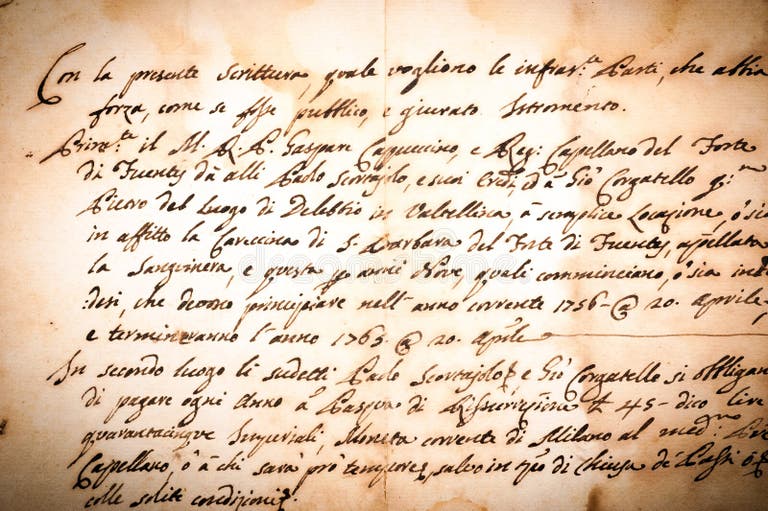 Con la presente Scrittura, quale vogliono le infras.te Parti, che abbia
forza, come se fosse pubblico, e giurato Istromento.
Prim.te il M. R. P. Gaspare Capuccino, e Reg: Capellano del Forte
di Fuentes dà alli Paolo Scortajolo, e suoi Eredi, ed à Giò Corgatello q:m
Pietro del Luogo di Delebbio in Valtellina, à semplice Locazione, ò sia
in affitto la Cascina di S. Barbara del Forte di Fuentes, appellata
la Sanguinera, e questa anni Nove, quali comminciano, ò sia
:desi, che deono principiare nell'anno corrente 1756 @ 20. Aprile,
e termineranno l'anno 1765. @ 20. Aprile
In secondo luogo li sudetti Paolo Scortajolo, e Giò Corgatello si obbligano
di pagare ogni Anno à Pasqua di Risurrezione 45- dico Lire
quarantacinque Imperiali, Moneta corrente di Milano al med.mo
Capellano, ò à chi sarà prò tempore, salvo in di
colle solite condizioni.